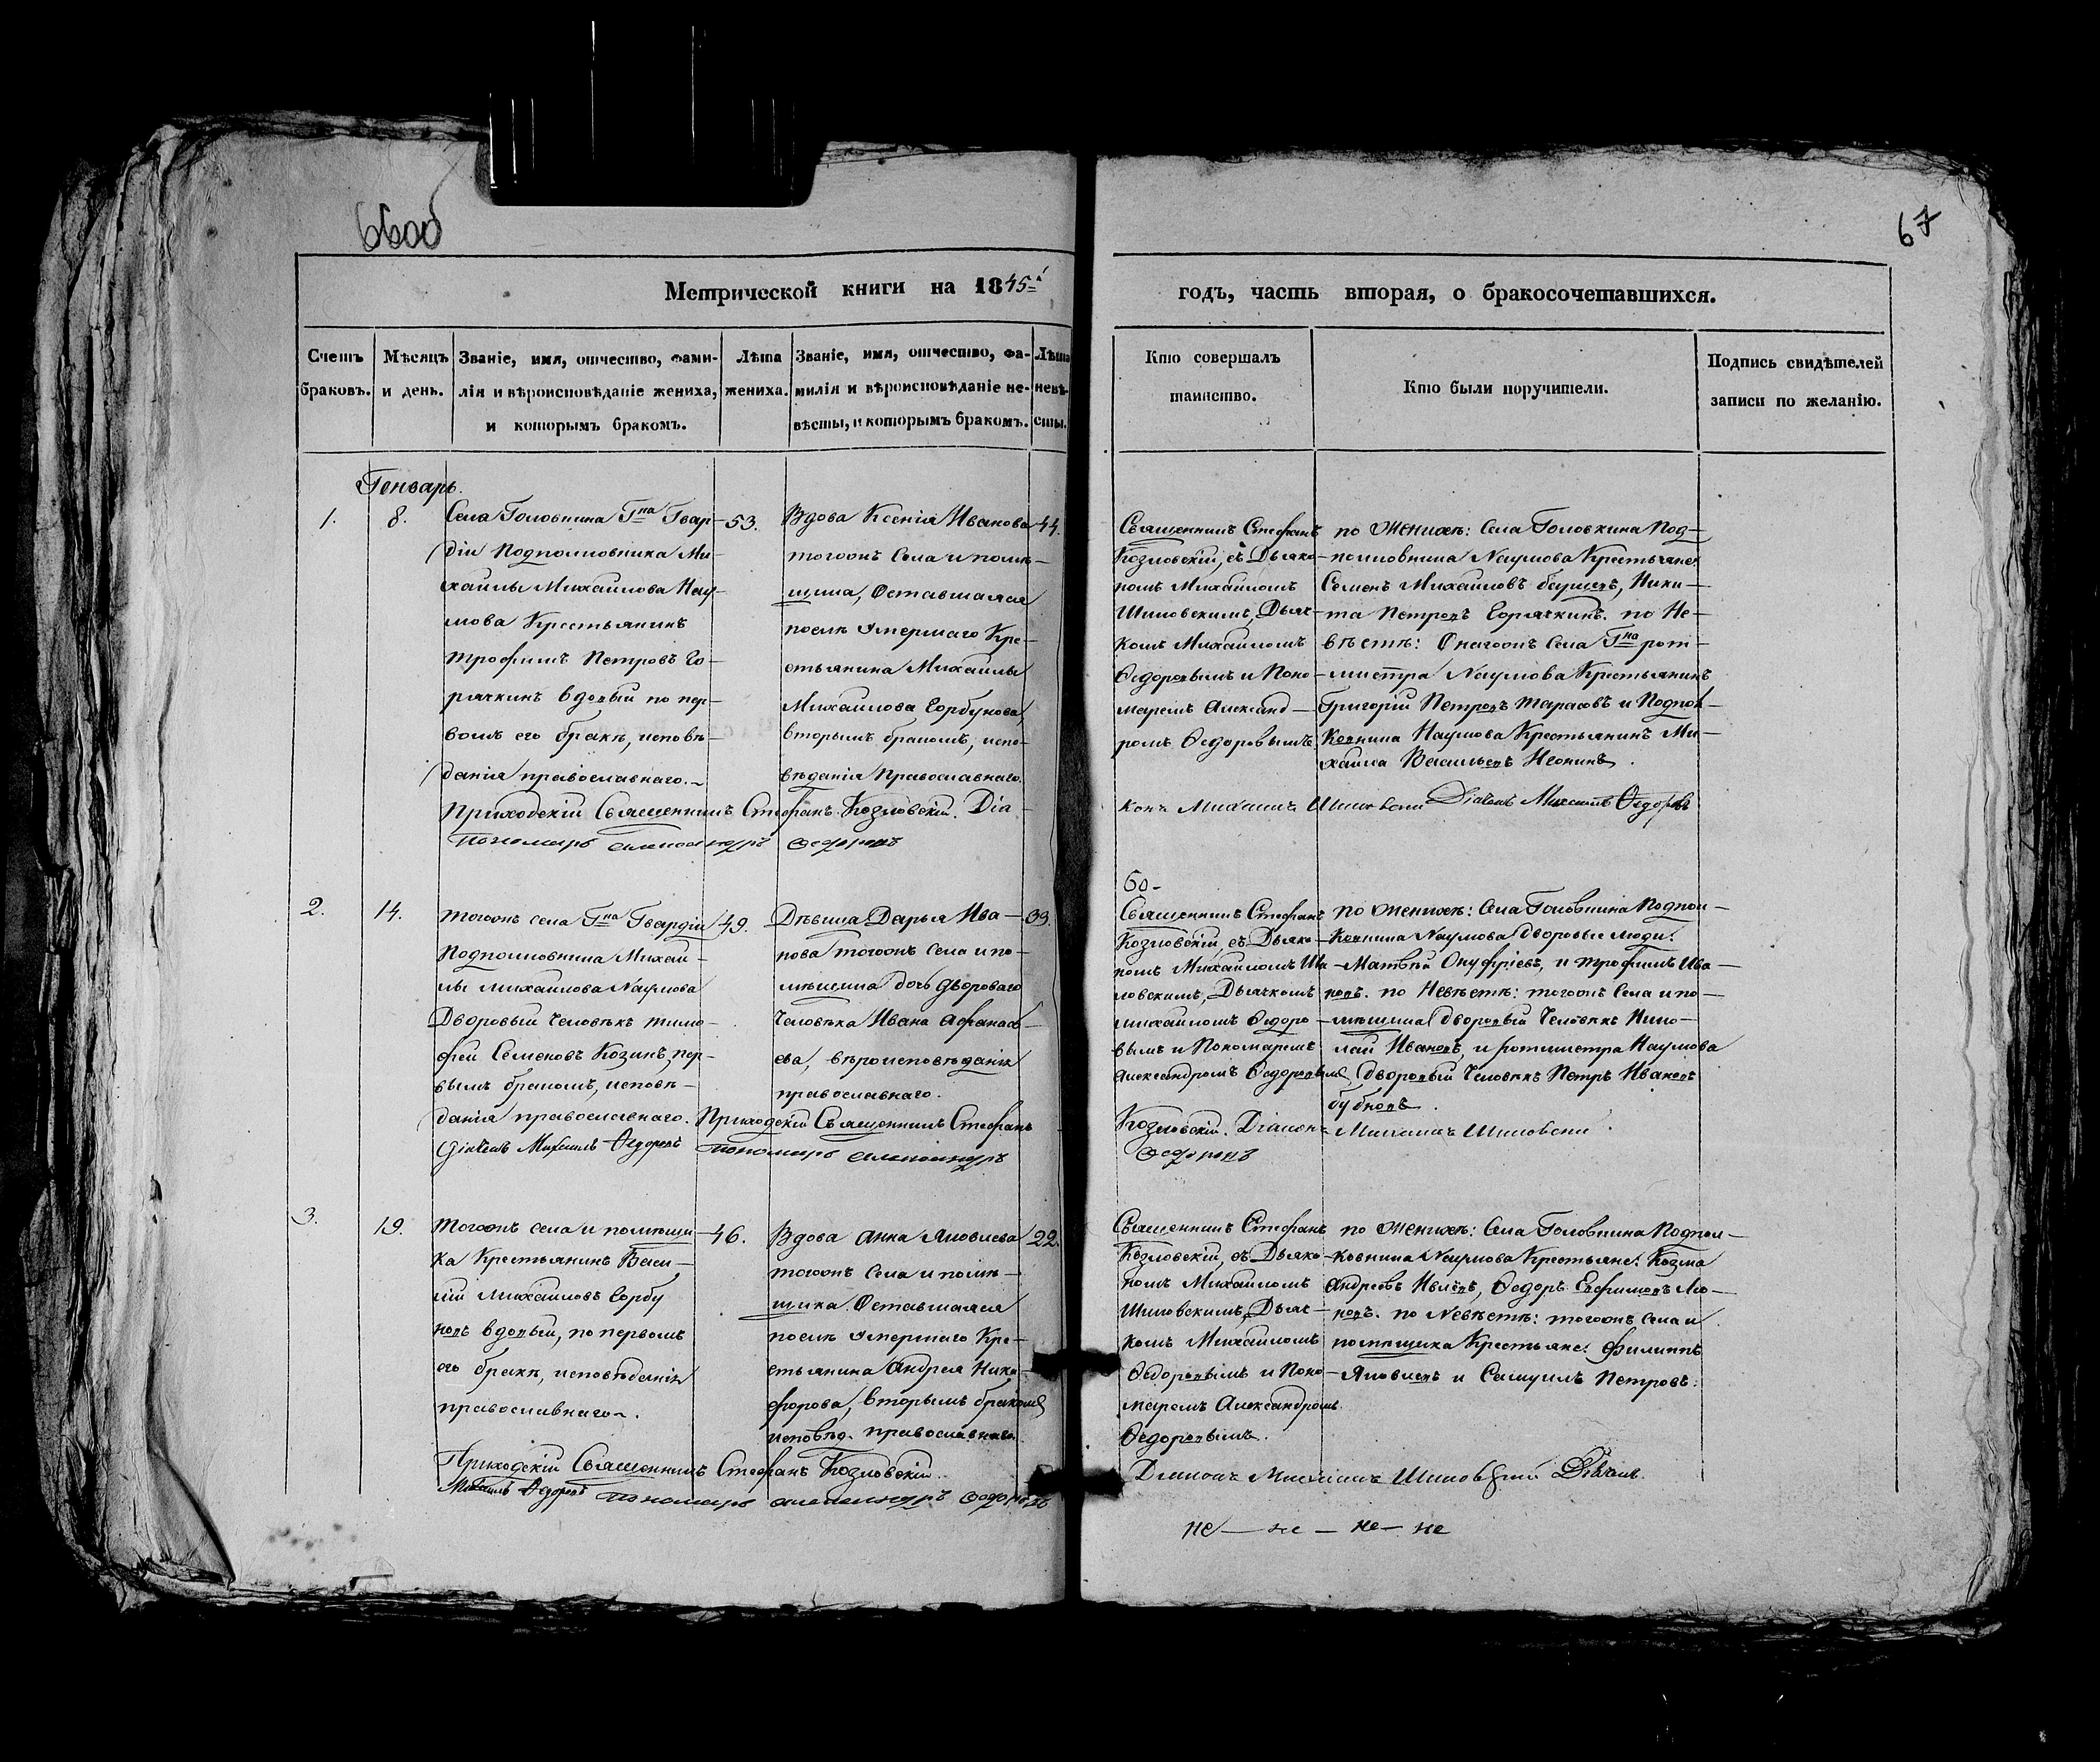 67
Метрической книги на 1845й
годъ, часть вторая, о бракосочетавшихся.
Счетъ браковъ.
Мѣсяцъ и день.
Званіе, имя, отчество, фами-
лія и вѣроисповѣданіе жениха,
и которымъ бракомъ.
Лѣта жениха.
Званіе, имя, отчество, фа-
милія и вѣроисповѣданіе не-
вѣсты, и которымъ бракомъ.
Лѣта невѣ-
сты.
Кто совершалъ
таинство.
Кто были поручители.
Подпись свидѣтелей
записи по желанію.
Генварь.
1.
8.
Села Головнина Гна Гвар-
діи Подполковника Ми-
хайлы Михайлова Нау-
мова Крестьянинъ
Трофимъ Петровъ Го-
рячкинъ вдовый по пер-
вомъ его бракѣ, исповѣ-
данія православнаго.
53.
Вдова Ксенія Иванова
тогожъ села и помѣ-
щика, Оставшаяся
послѣ умершаго Кре-
стьянина Михайлы
Михайлова Горбунова,
вторымъ бракомъ, испо-
вѣданія Православнаго.
44.
Священникъ Стефанъ
Козловскій, съ Дьяко-
номъ Михайломъ
Шиловскимъ, Дьяч-
комъ Михайломъ
Ѳедоровымъ и Поно-
маремъ Александ-
ромъ Ѳедоровымъ
по Женихѣ: Села Головнина Под-
полковника Наумова Крестьяне:
Семенъ Михайловъ, Ники-
та Петровъ Горячкинъ. по Не-
вѣстѣ: Онагожъ Села Гна рот-
мистра Наумова Крестьянинъ
Григорій Петровъ Тарасовъ и Подпол-
ковника Наумова Крестьянинъ Ми-
хайла Васильевъ
Приходскій Священникъ Стефанъ Козловскій. Діа-
конъ Михаилъ Шиловскій Дьячекъ Михаилъ Ѳедоровъ
Пономарь Александръ Ѳедоровъ
2.
14.
Тогожъ села Гна Гвардіи
Подполковника Михай-
лы Михайлова Наумова
Дворовый Человѣкъ Тимо-
фей Семеновъ Козинъ, пер-
вымъ бракомъ, исповѣ-
данія православнаго.
49.
Дѣвица Дарья Ива-
нова тогожъ села и по-
мѣщика дочь дворового
Человѣка Ивана Афанась-
ева, вѣроисповѣданія
православнаго.
39.
Священникъ Стефанъ
Козловскій, съ Дьяко-
номъ Михайломъ Ши-
ловскимъ, Дьячкомъ
Михайломъ Ѳедоро-
вымъ и Пономаремъ
Александромъ Ѳедоровымъ
по Женихѣ: Села Головнина Подпол-
ковника Наумова дворовые люди:
Матвѣй Онуфріевъ, и Трофимъ Ива-
новъ. по Невѣстѣ: тогожъ Села и по-
мѣщика дворовый Человѣкъ Нико-
лай Ивановъ, и ротмистра Наумова
дворовый Человѣкъ Петръ Ивановъ
Бубновъ.
Приходскій Священникъ Стефанъ
Козловскій. Діаконъ Михаилъ Шиловскій
Дьячекъ Михаилъ Ѳедоровъ Пономарь Александръ
Ѳедоровъ
3.
19.
Тогожъ села и помѣщи-
ка Крестьянинъ Васи-
лій Михайловъ Горбу
новъ вдовый, по первомъ
его бракѣ, исповѣданія
православнаго.
46.
Вдова Анна Яковлева
тогожъ села и помѣ-
щика. Оставшаяся
послѣ умершаго Кре-
стьянина Андрея Ники-
форова, вторымъ бракомъ
исповѣд. православнаго.
22.
Священникъ Стефанъ
Козловскій, съ Дьяко-
номъ Михайломъ
Шиловскимъ, Дьяч-
комъ Михайломъ
Ѳедоровымъ и Поно-
маремъ Александромъ
Ѳедоровымъ.
по Женихѣ: Села Головнина Подпол-
ковника Наумова Крестьяне: Козма
Андреевъ, Ѳедоръ Ефимовъ
по Невѣстѣ: тогожъ Села и
помѣщика Крестьяне: Филиппъ
Яковлевъ и Самуилъ Петровъ.
Приходскій Священникъ Стефанъ Козловскій.
Діаконъ Михаилъ Шиловскій Дьячекъ
Михаилъ Ѳедоровъ Пономарь Александръ Ѳедоровъ